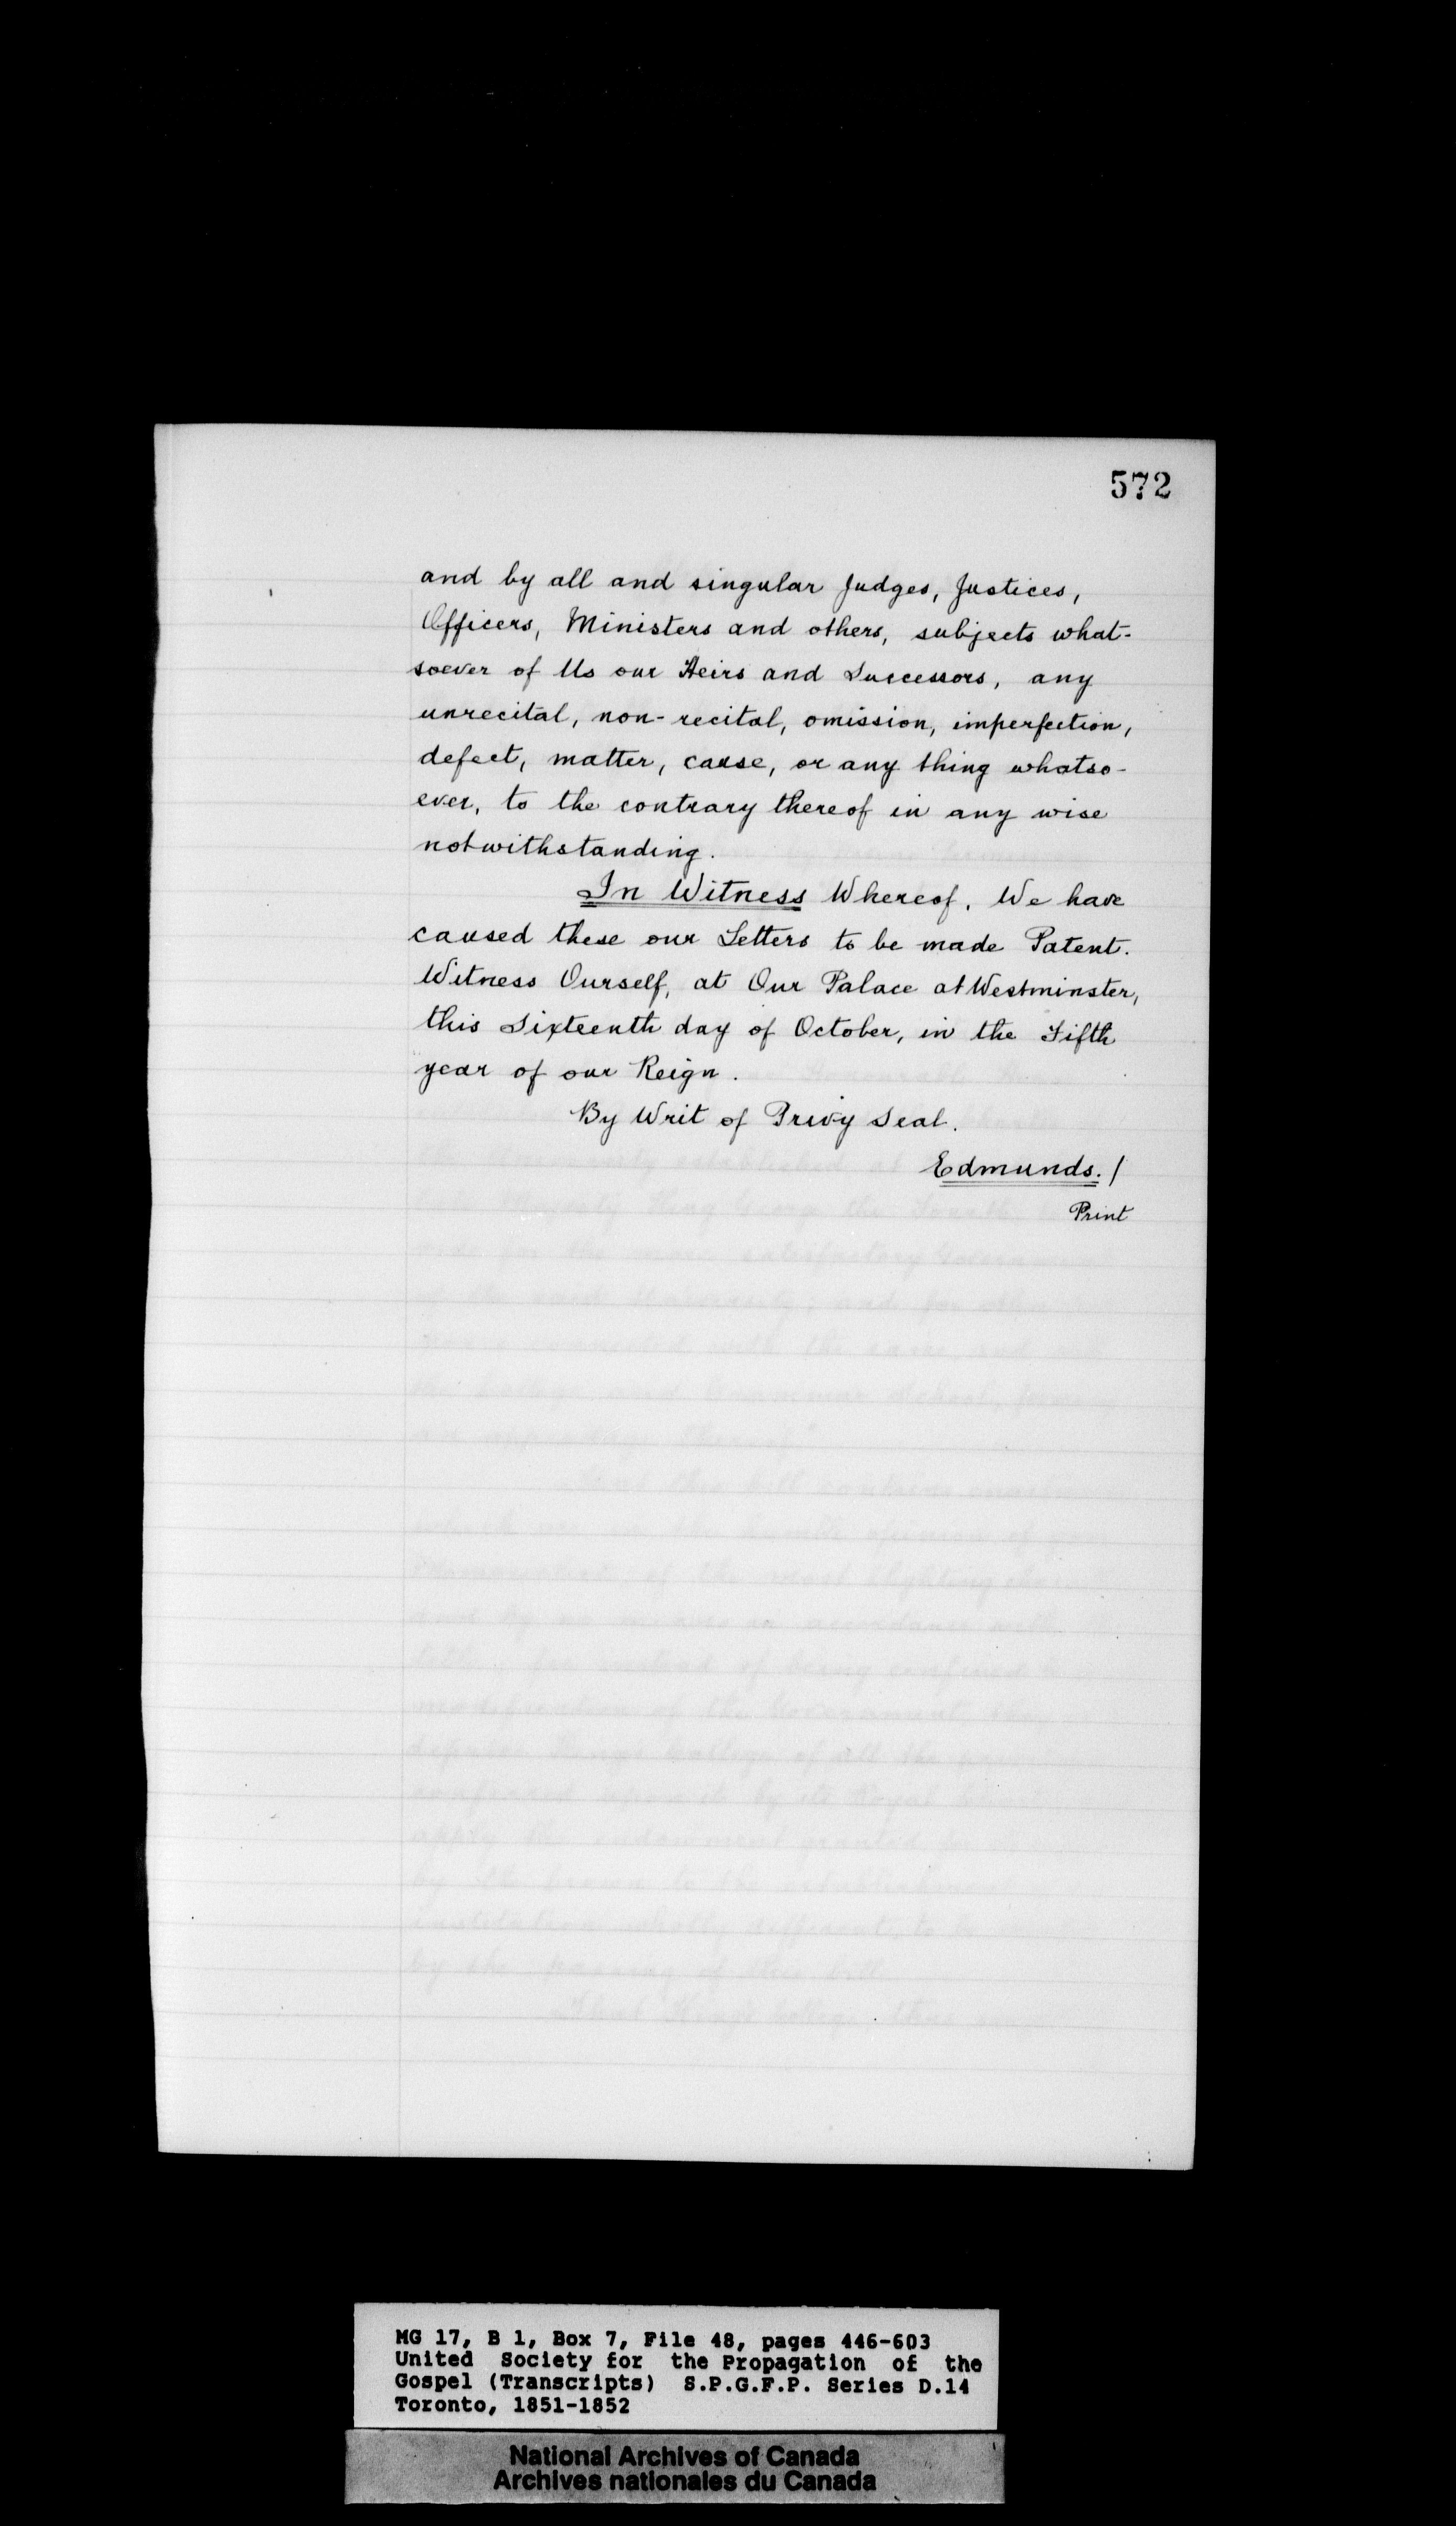 572
and by all and singular Judges, Justices,
Officers, Ministers and others, subjects what-
soever of Us our Heirs and Successors, any
unrecital, non-recital, omission, imperfection,
defect, matter, cause, or any thing whatso-
ever, to the contrary thereof in any wise
notwithstanding.
In Witness Whereof. We have
caused these our Letters to be made Patent.
Witness Ourself, at Our Palace at Westminster,
this Sixteenth day of October, in the Fifth
year of our Reign.
By Writ of Privy Seal.
Edmunds./
Print
MG 17, B 1, Box 7, File 48, pages 446-603
United Society for the Propagation of the
Gospel (Transcripts) S.P.G.F.P. Series D.14
Toronto, 1851-1852
National Archives of Canada
Archives nationales du Canada